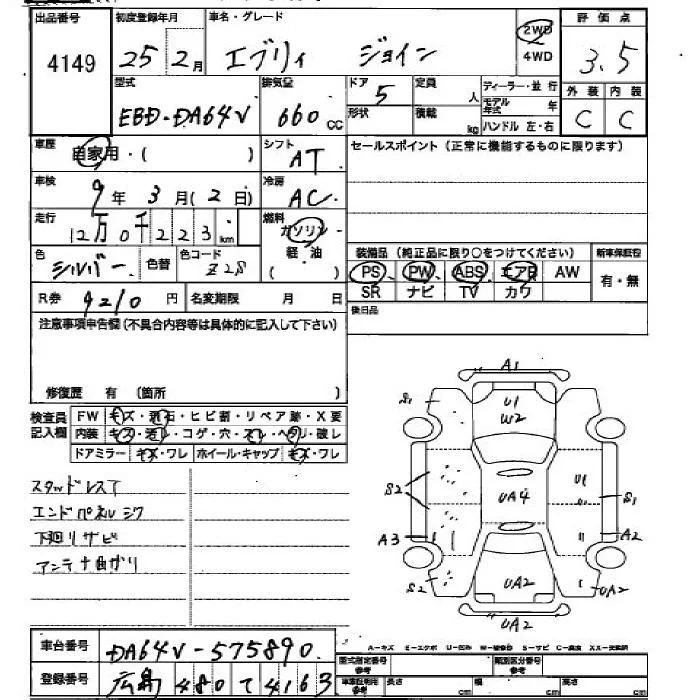 出品番号 初度登録年月 車名・グレード 評価点
4149 25 2月 エブリィ ジョイン 2WD 4WD 3.5
型式 排気量 ドア 定員 ディーラー・並行 外装 内装
EBD-DA64V 660cc 5 人 モデル年式 年 C C
形状 積載 kg ハンドル 左・右
車歴 自家用・( ) シフト AT セールスポイント(正常に機能するものに限ります)
車検 9年3月(2日) 冷房 AC
走行 12万0千223km 燃料 ガソリン 軽油( )
色 シルバー 色替 色コード Z2S 装備品(純正品に限り○をつけてください) 新車保証書
PS PW ABS エアB AW 有・無
R券 9210円 名変期限 月 日 SR ナビ TV カワ
注意事項申告欄(不具合内容等は具体的に記入して下さい) 後日品
修復歴 有 (箇所 )
検査員記入欄 FW キズ・飛石・ヒビ割・リペア跡・X要
内装 キズ・汚レ・コゲ・穴・スレ・ヘタリ・破レ
ドアミラー キズ・ワレ ホイール・キャップ キズ・ワレ
A1
S1 U1
W2
S2 UA4 U1 S1
A3 A2
S2 UA2 UA2
UA2
スタッドレスT
エンドパネルシワ
下廻リサビ
アンテナ曲ガリ
A-キズ E-エクボ U-凹み W-補修跡 S-サビ C-腐食 XX-交換済
車台番号 DA64V-575890
型式指定番号 参考 類別区分番号 参考
登録番号 広島 480 て 4163
車庫証明用 参考 長さ cm 幅 cm 高さ cm